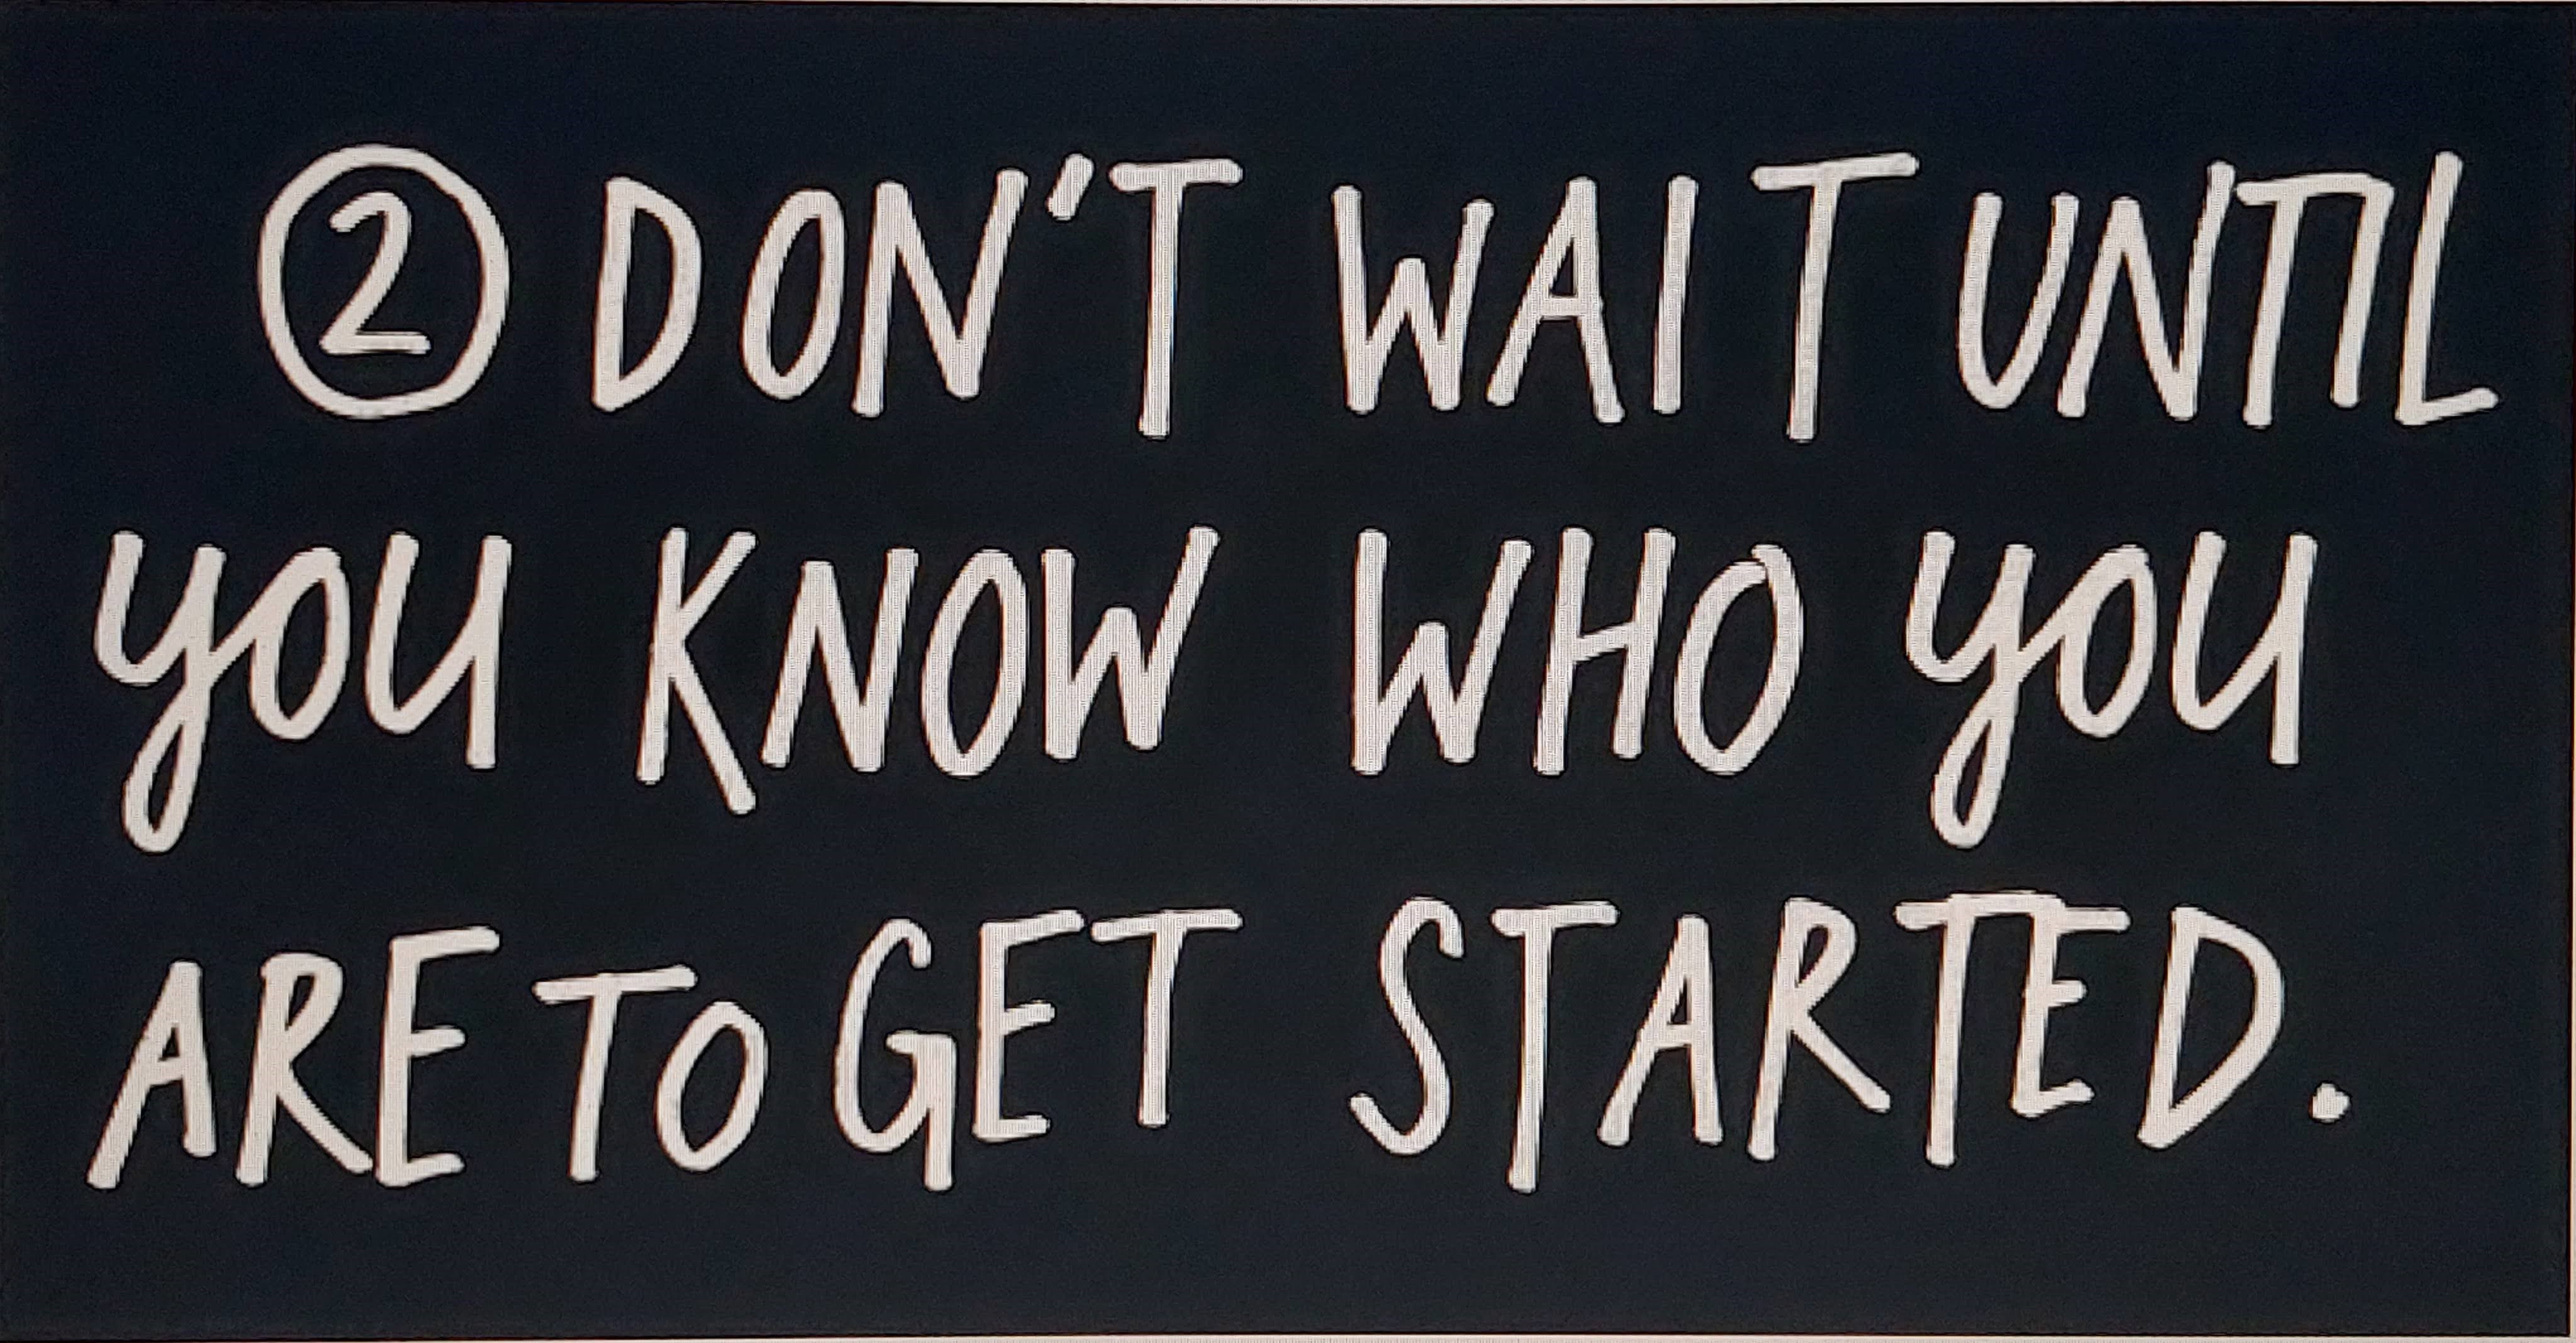 ② DON'T WAIT UNTIL
YOU KNOW WHO YOU
ARE TO GET STARTED.